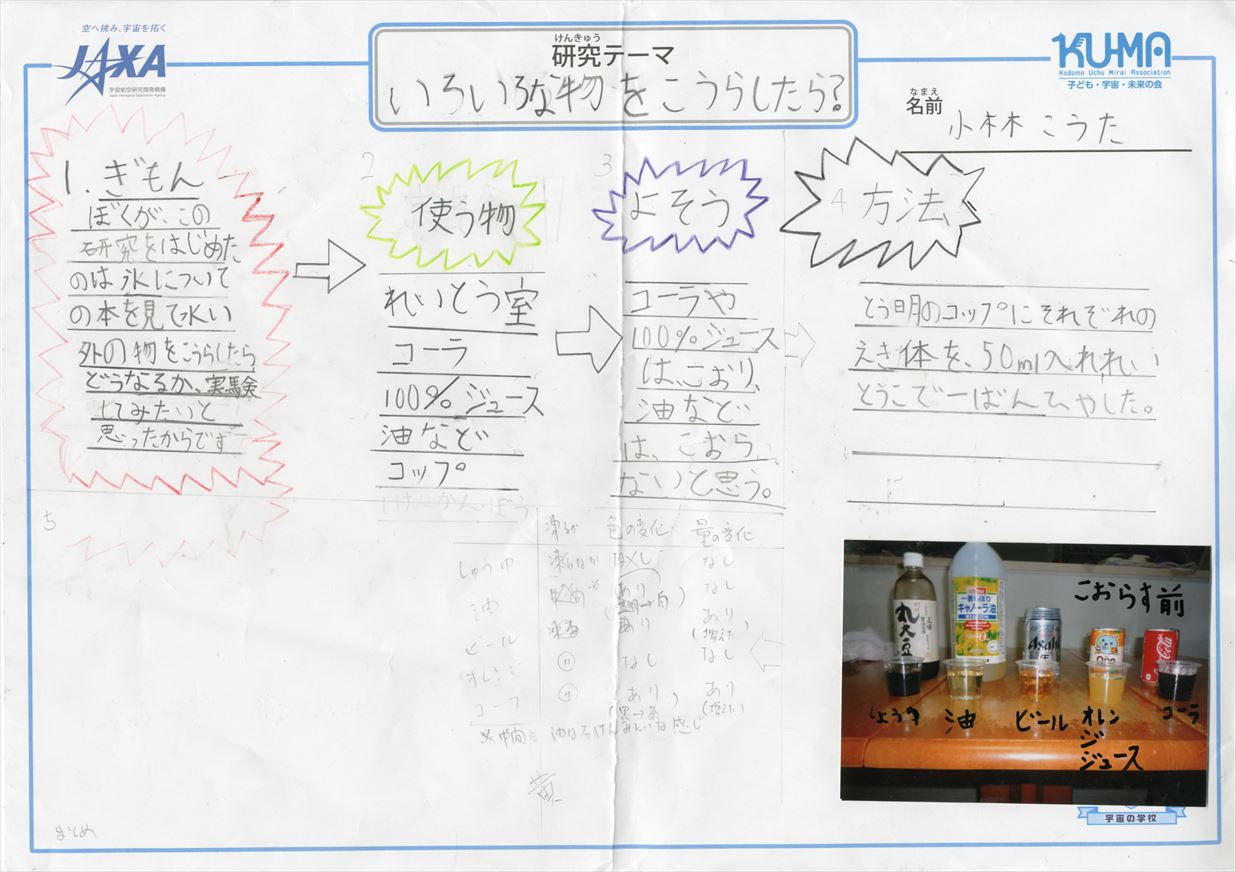 空へ挑み、宇宙を拓く
JAXA
宇宙航空研究開発機構
Japan Aerospace Exploration Agency
けんきゅう
研究テーマ
いろいろな物をこうらしたら?
KU-MA
Kodomo Uchu Mirai Association
子ども・宇宙・未来の会
なまえ
名前
小林 こうた
1. ぎもん
ぼくが、この
研究をはじめた
のは氷について
の本を見て水い
外の物をこうらしたら
どうなるか、実験
してみたいと
思ったからです
2
使う物
れいとう室
コーラ
100% ジュース
油など
コップ
3
よそう
コーラや
100%ジュース
は、こおり、
油など
は、こおら、
ないと思う。
4 方法
とう明のコップにそれぞれの
えき体を、50ml入れれい
とうこで一ばんひやした。
5
凍るか 色の変化 量の変化
しょうゆ 凍らなか なし なし
油 中間※ あり
ビール あり あり
(増えた)
オレンジ 〃 なし なし
コーラ 〃 あり あり
(黒→茶) (増えた)
※中間は 油は石けんみたいな感じ
まとめ
こおらす前
丸大豆
一番しぼり
キャノーラ油
Asahi
Qoo
しょうゆ
油
ビール
オレン
ジ
ジュース
コーラ
宇宙の学校